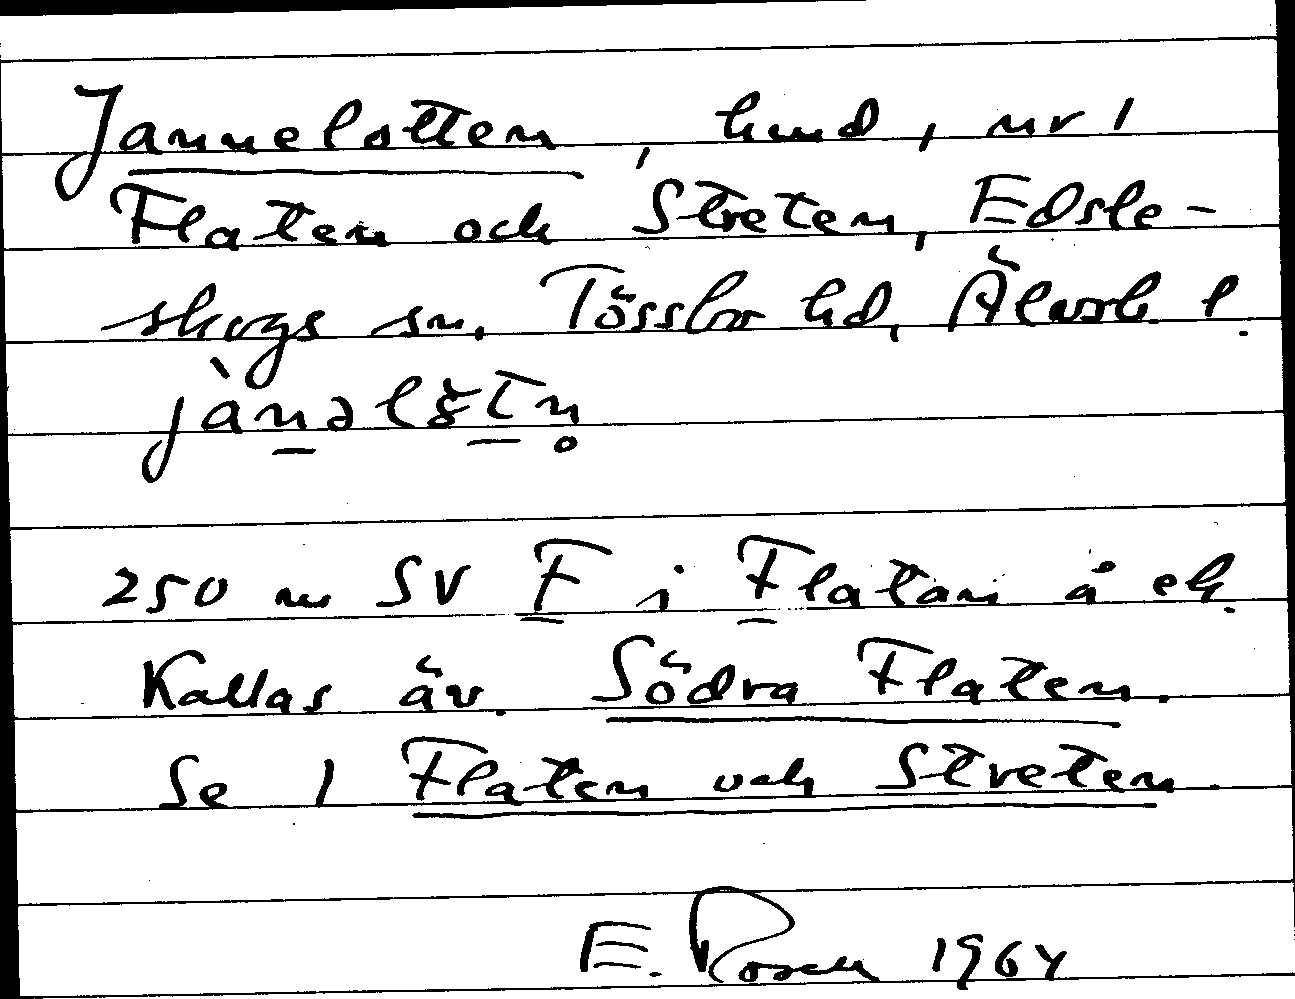 Jannelotten, hmd, nr 1
Flaten och Streten, Edsle-
skogs sn. Tössbo hd, Älvsb. l.
250 m SV F i Flatan å ek.
Kallas äv. Södra Flaten.
Se 1 Flaten och Streten.
E. Rosell 1964